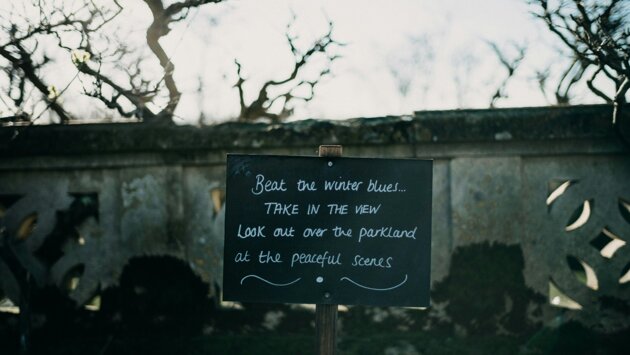 Beat the winter blues...
TAKE IN THE VIEW
Look out over the parkland
at the peaceful scenes